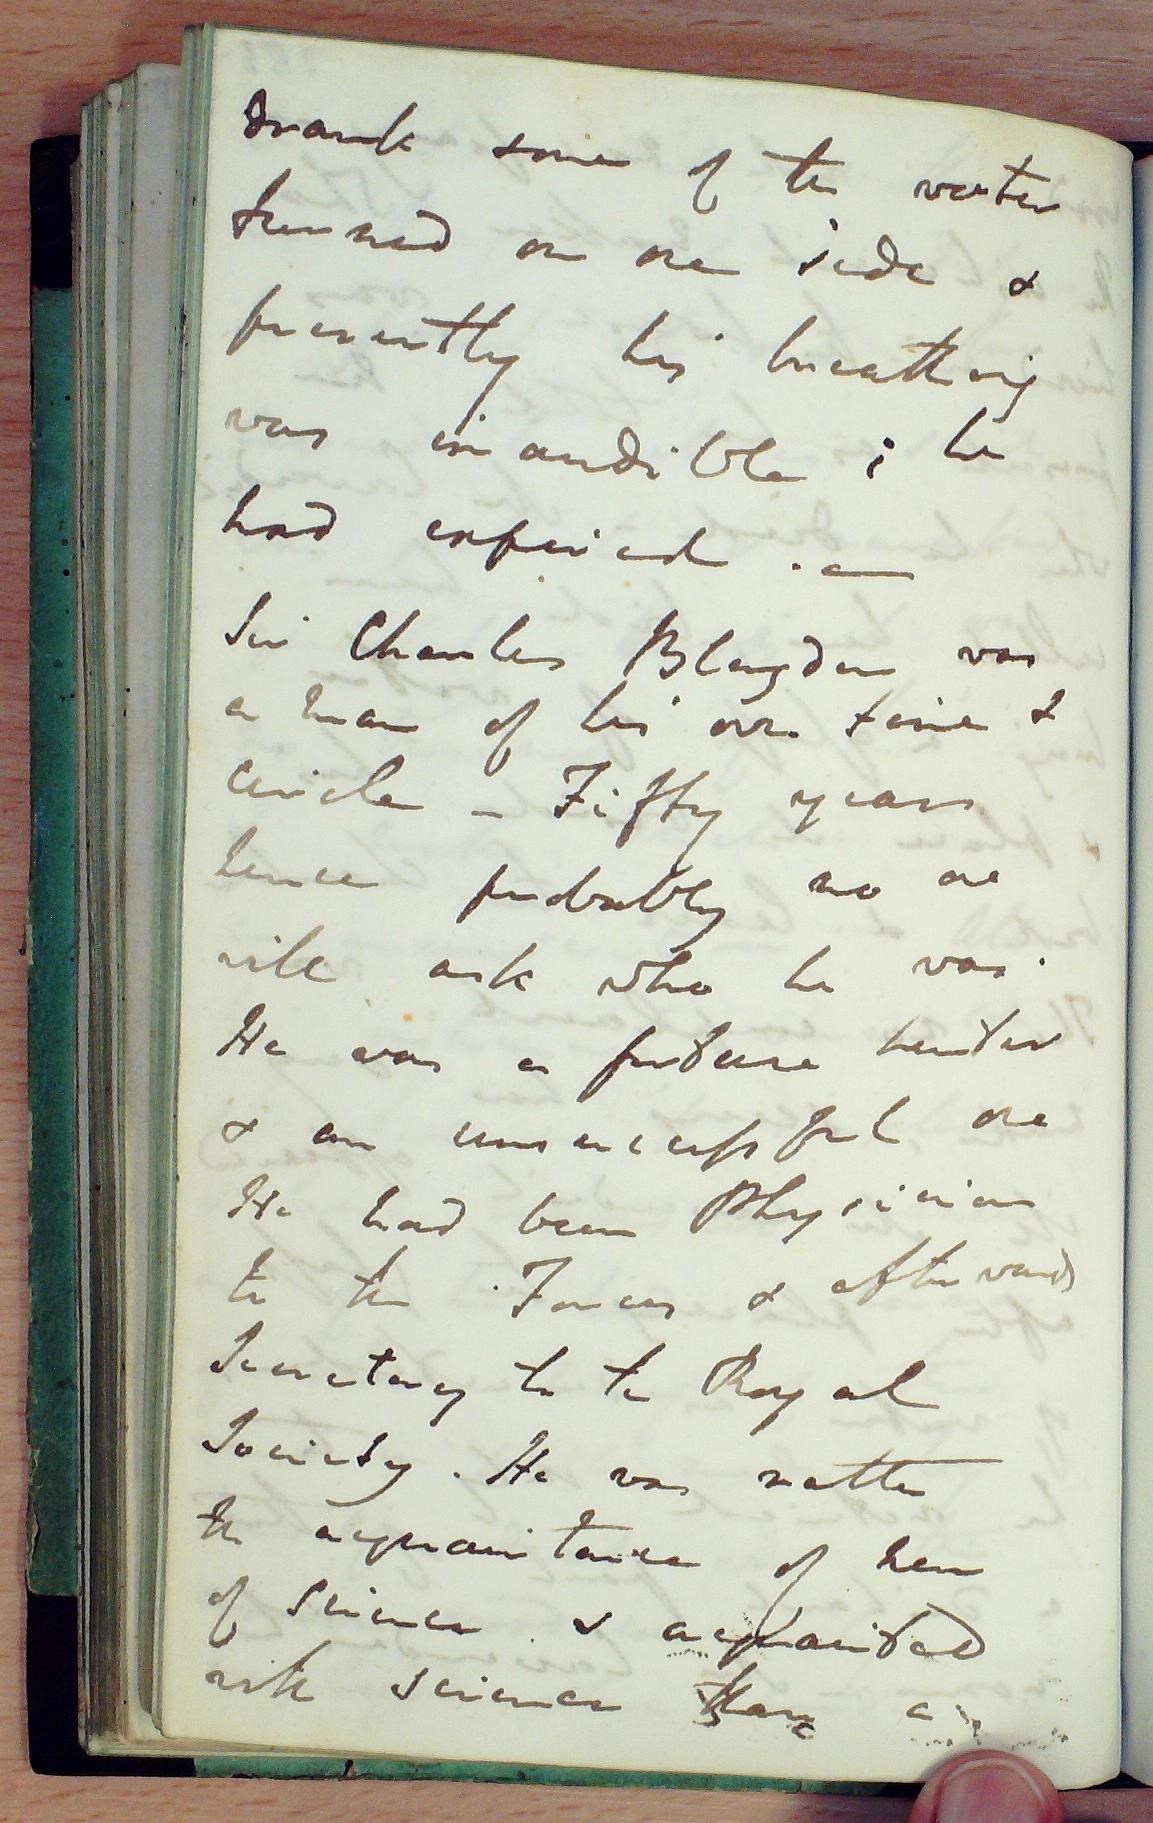 drank some of the water
turned on one side &
presently his breathing
was inaudible; he
had expired. —
Sir Charles Blagden was
a man of his own time &
circle – Fifty years
hence probably no one
will ask who he was.
He was a fortune hunter
& an unsuccessful one
He had been Physician
to the Forces & afterwards
Secretary to the Royal
Society. He was rather
the acquaintance of men
of science & acquainted
with science than a